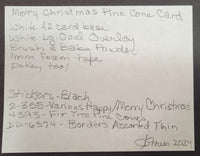 Merry Christmas Pine Cone Card
White A2 card base
White by Oval Overlay
Brush & Baby Powder
1mm foam tape
pokey tool
Stickers - Black
2-385 - Various Happy/Merry Christmas
4393 - Fir Tree Pine Cones
DD-6374 - Borders Assorted Thin
2024